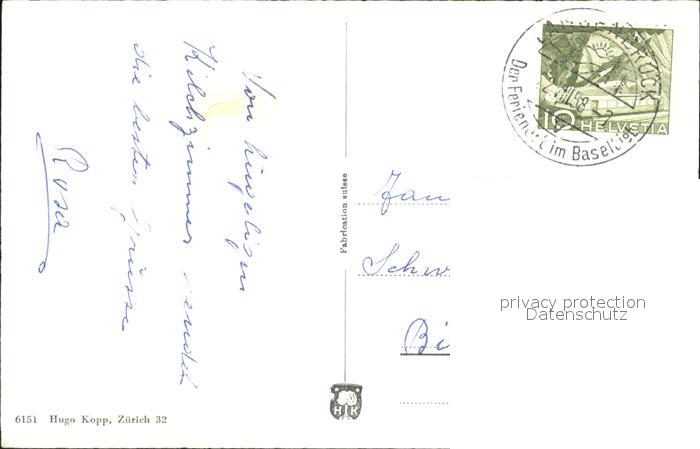 Von hügeligen
Kilchzimmer senden
die besten Grüsse
Rosa
6151 Hugo Kopp, Zürich 32
Fabrication suisse
HK
LANGENBRUCK
Der Ferienort im Baselbiet
10 HELVETIA
Fam
Schw
Bi
privacy protection
Datenschutz